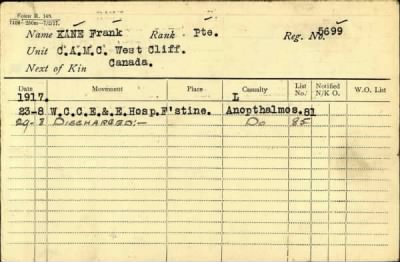 Form R. 149.
Name KANE Frank Rank Pte. Reg. No. 5699
Unit C.A.M.C. West Cliff.
Next of Kin Canada.
Date Movement Place Casualty List No. Notified N/K O. W.O. List
1917. L
23-8 W.C.C.E.&.E.Hosp.F'stine. Anopthalmos. 81
29-8 DISCHARGED:- Do 85